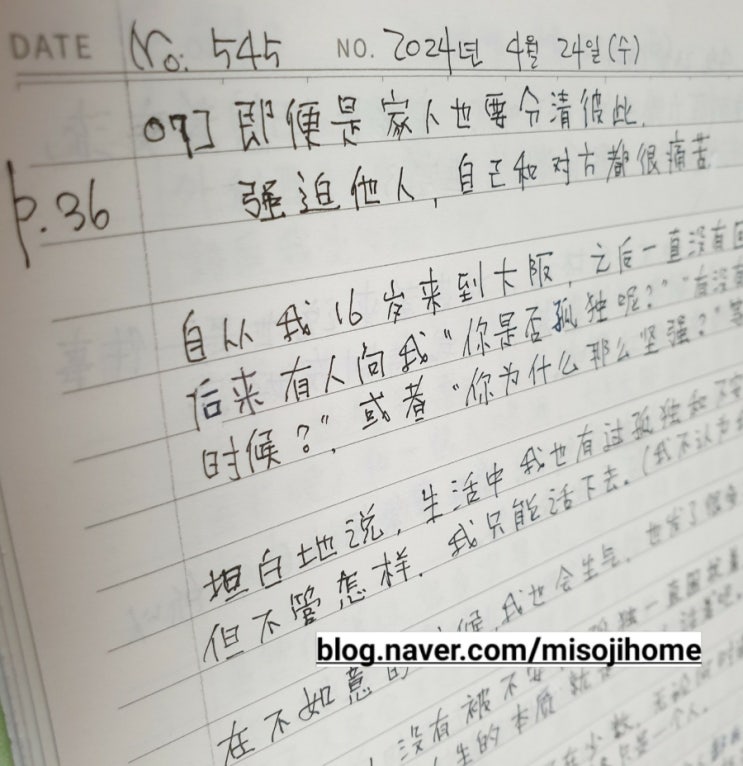 DATE No. 545 NO. 2024년 4월 24일(수)
07] 即便是家人也要分清彼此.
p.36 强迫他人, 自己和对方都很痛苦
自从我16岁来到大阪, 之后一直没有
后来有人问我“你是否孤独呢?” “有没有
时候?”, 或者“你为什么那么坚强?”等
坦白地说, 生活中我也有过孤独和不安
但不管怎样, 我只能活下去. (我不认为
在不如意的 候, 我也会生气, 也发了很多
blog.naver.com/misojihome
没有被不安 独一直困扰着
生的本质就
在少数, 无论何时
一个人.